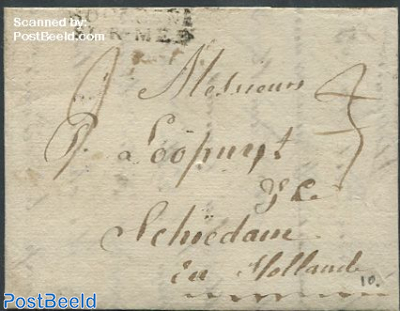 Scanned by:
PostBeeld.com
R·MER
Messieurs
P. Loopuyt
& C
Schiedam
En Hollande
10.
PostBeeld